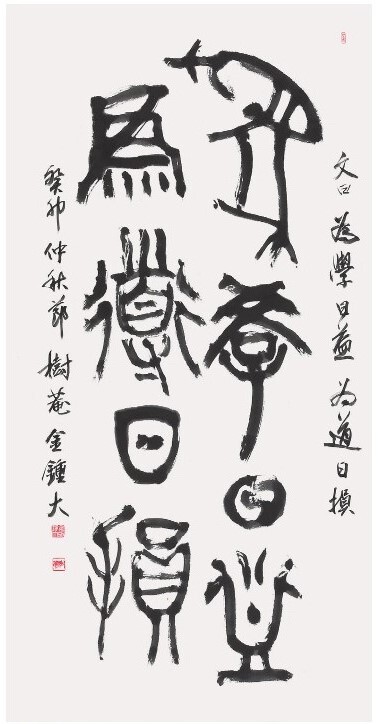 文曰 為學日益 為道日損
為學日益
為道日損
癸卯仲秋節 樹菴 金鍾大